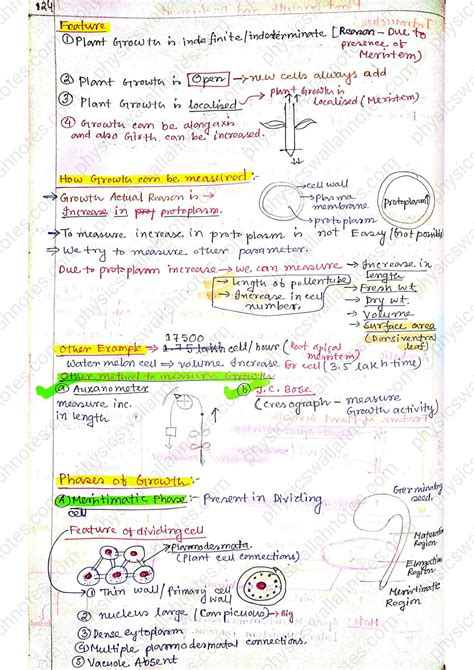 124
Feature
① Plant Growth is indefinite/indeterminate [Reason - Due to
presence of
Meristem)
② Plant Growth is Open → new cells always add
③ Plant Growth is localised → Plant Growth is
localised (Meristem)
④ Growth can be along axis
and also Girth can be increased.
How Growth can be measured :-
→ Growth Actual Reason is →
Increase in protoplasm.
cell wall
Plasma
membrane
protoplasm
Protoplasm↑
⇒ To measure increase in protoplasm is not Easy/(not possible)
⇒ We try to measure other parameter.
Due to protoplasm increase → we can measure → Increase in
length
→ Length of pollentube
→ Increase in cell
number.
→ Fresh wt.
→ Dry wt.
→ Volume
→ Surface area
(Dorsiventral
leaf)
17500
Other Example ⇒ 1.75 lakh cell/hour (Root apical
meristem)
water melon cell ⇒ volume Increase for cell (3.5 lakh time)
Other method to measure Growth
ⓐ Auxanometer
measure inc.
in length
ⓑ J.C. Bose
(cresograph - measure
Growth activity)
Phases of Growth :-
Ⓐ Meristimatic Phase :- Present in Dividing
cell
Germinating
seed.
Maturation
Region
Elongation
Region
Meristimatic
Region
Feature of dividing cell
Plasmodesmata.
(Plant cell connections)
① Thin wall/Primary cell
wall
② nucleus large (Conspicuous) → Big
③ Dense cytoplasm
④ Multiple plasmodesmatal connections.
⑤ Vacuole Absent